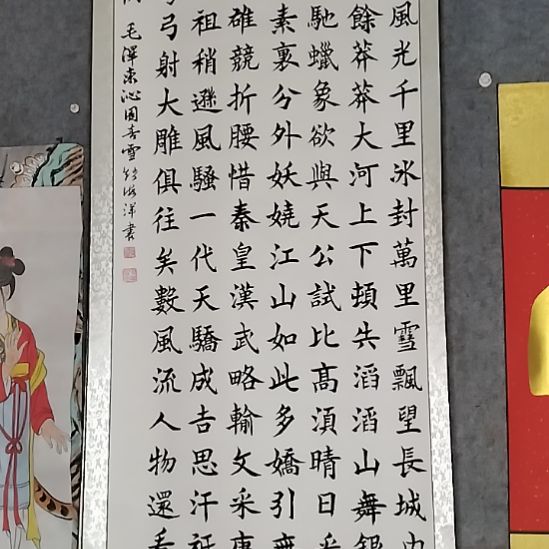 風光千里冰封萬里雪飄望長城内
餘莽莽大河上下頓失滔滔山舞銀
馳蠟象欲與天公試比高須晴日看
素裹分外妖嬈江山如此多嬌引無
雄競折腰惜秦皇漢武略輸文采唐
祖稍遜風騷一代天驕成吉思汗祗
弓射大雕俱往矣數風流人物還看
毛澤東沁園春雪 洋書